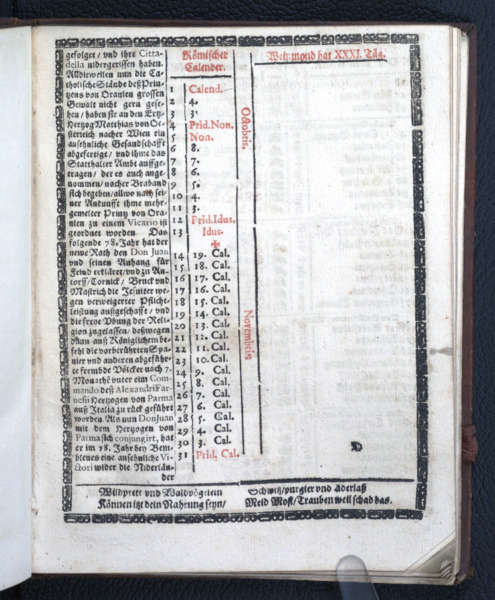 gefolget / und ihre Citta-
della nidergerissen haben.
Alldieweilen nun die Ca-
tholische Stände deß Prin-
tzens von Oranien grossen
Gewalt nicht gern gese-
hen / haben sie an den Ertz-
Hertzog Matthias von Oe-
sterreich nacher Wien ein
ansehnliche Gesandschafft
abgefertigt / und ihme das
Statthalter Ambt auffge-
tragen / der es auch ange-
nommen / nacher Braband
sich begeben / allwo nach sei-
ner Ankunfft ihme mehr-
gemelter Printz von Ora-
nien zu einem Vicario ist
geordnet worden. Das
folgende 78. Jahr hat der
newe Rath den Don Juan
und seinen Anhang für
Feind erkläret / und zu An-
torff / Tornick / Bruck und
Mastrich die Jesuiter we-
gen verweigerter Pflicht-
leistung außgeschafft / und
die freye Ubung der Reli-
gion zugelassen / deßwegen
Königlichem be-
fehl die vorberührten Spa-
nier und anderen abgeführ-
te frembde Völcker nach 7.
Monathē unter eim Com-
mando deß Alexandri Far-
nesii Hertzogen von Parma
auß Italia zu rück geführt
worden. Als nun Don Juan
mit dem Hertzogen von
Parma sich conjungirt, hat
er im 78. Jahr bey Gem-
blours eine ansehnliche Vi-
ctori wider die Niderlän-
der
Römischer
Calender.
1 Calend.
2 4.
3 3.
4 Prid. Non.
5 Non.
6 8.
7 7.
8 6.
9 5.
10 4.
11 3.
12 Prid. Idus.
13 Idus.
14 19. Cal.
15 18. Cal.
16 17. Cal.
17 16. Cal.
18 15. Cal.
19 14. Cal.
20 13. Cal.
21 12. Cal.
22 11. Cal.
23 10. Cal.
24 9. Cal.
25 8. Cal.
26 7. Cal.
27 6. Cal.
28 5. Cal.
29 4. Cal.
30 3. Cal.
31 Prid. Cal.
Octobris.
Novembris.
Weinmond hat XXXI. Täg.
D
Wildprett und Waldvögelein
Können itzt dein Nahrung seyn /
Schwitz / purgier und Aderlaß
Meid Most / Trauben weil schad das.